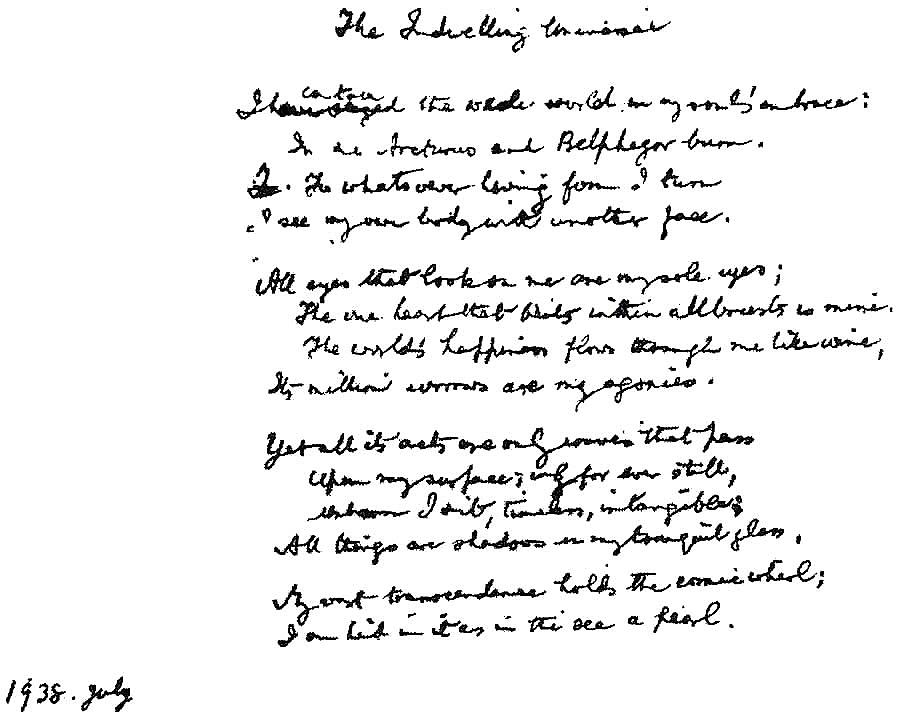 The Indwelling Universal
I contain the whole world in my soul's embrace:
In me Arcturus and Belphegor burn.
To whatsoever living form I turn
I see my own body with another face.
All eyes that look on me are my sole eyes;
The one heart that beats within all breasts is mine.
The world's happiness flows through me like wine,
Its million sorrows are my agonies.
Yet all its acts are only waves that pass
Upon my surface; inly for ever still,
Unborn I sit, timeless, intangible;
All things are shadows in my tranquil glass.
My vast transcendence holds the cosmic whirl;
I am hid in it as in the sea a pearl.
1938. July